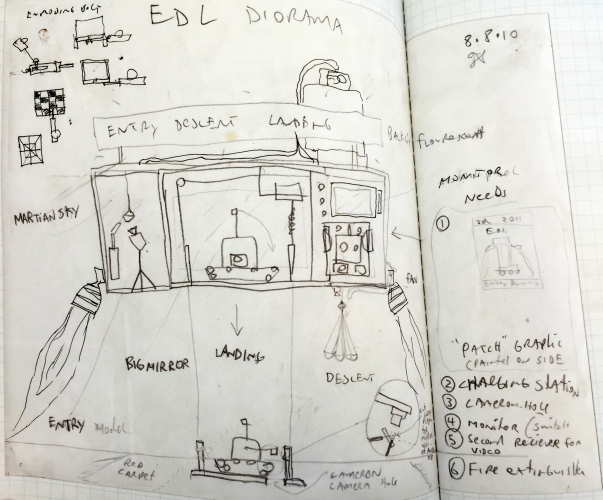 EXPLODING BOLT
EDL DIORAMA
8.8.10
ENTRY DESCENT LANDING
MONITOREL
NEEDS
MARTIAN SKY
①
JPL 2011
EDL
FAN
BIG MIRROR
LANDING
DESCENT
"PATCH" GRAPHIC
(PAINTED ON SIDE
② CHARGING STATION
③ CAMERON HOLE
④ MONITOR (SWITCH
⑤ SECOND RECIEVER FOR
VIDEO
⑥ FIRE EXTINGUISHER
ENTRY Model
RED
CARPET
CAMERON
CAMERA HOLE